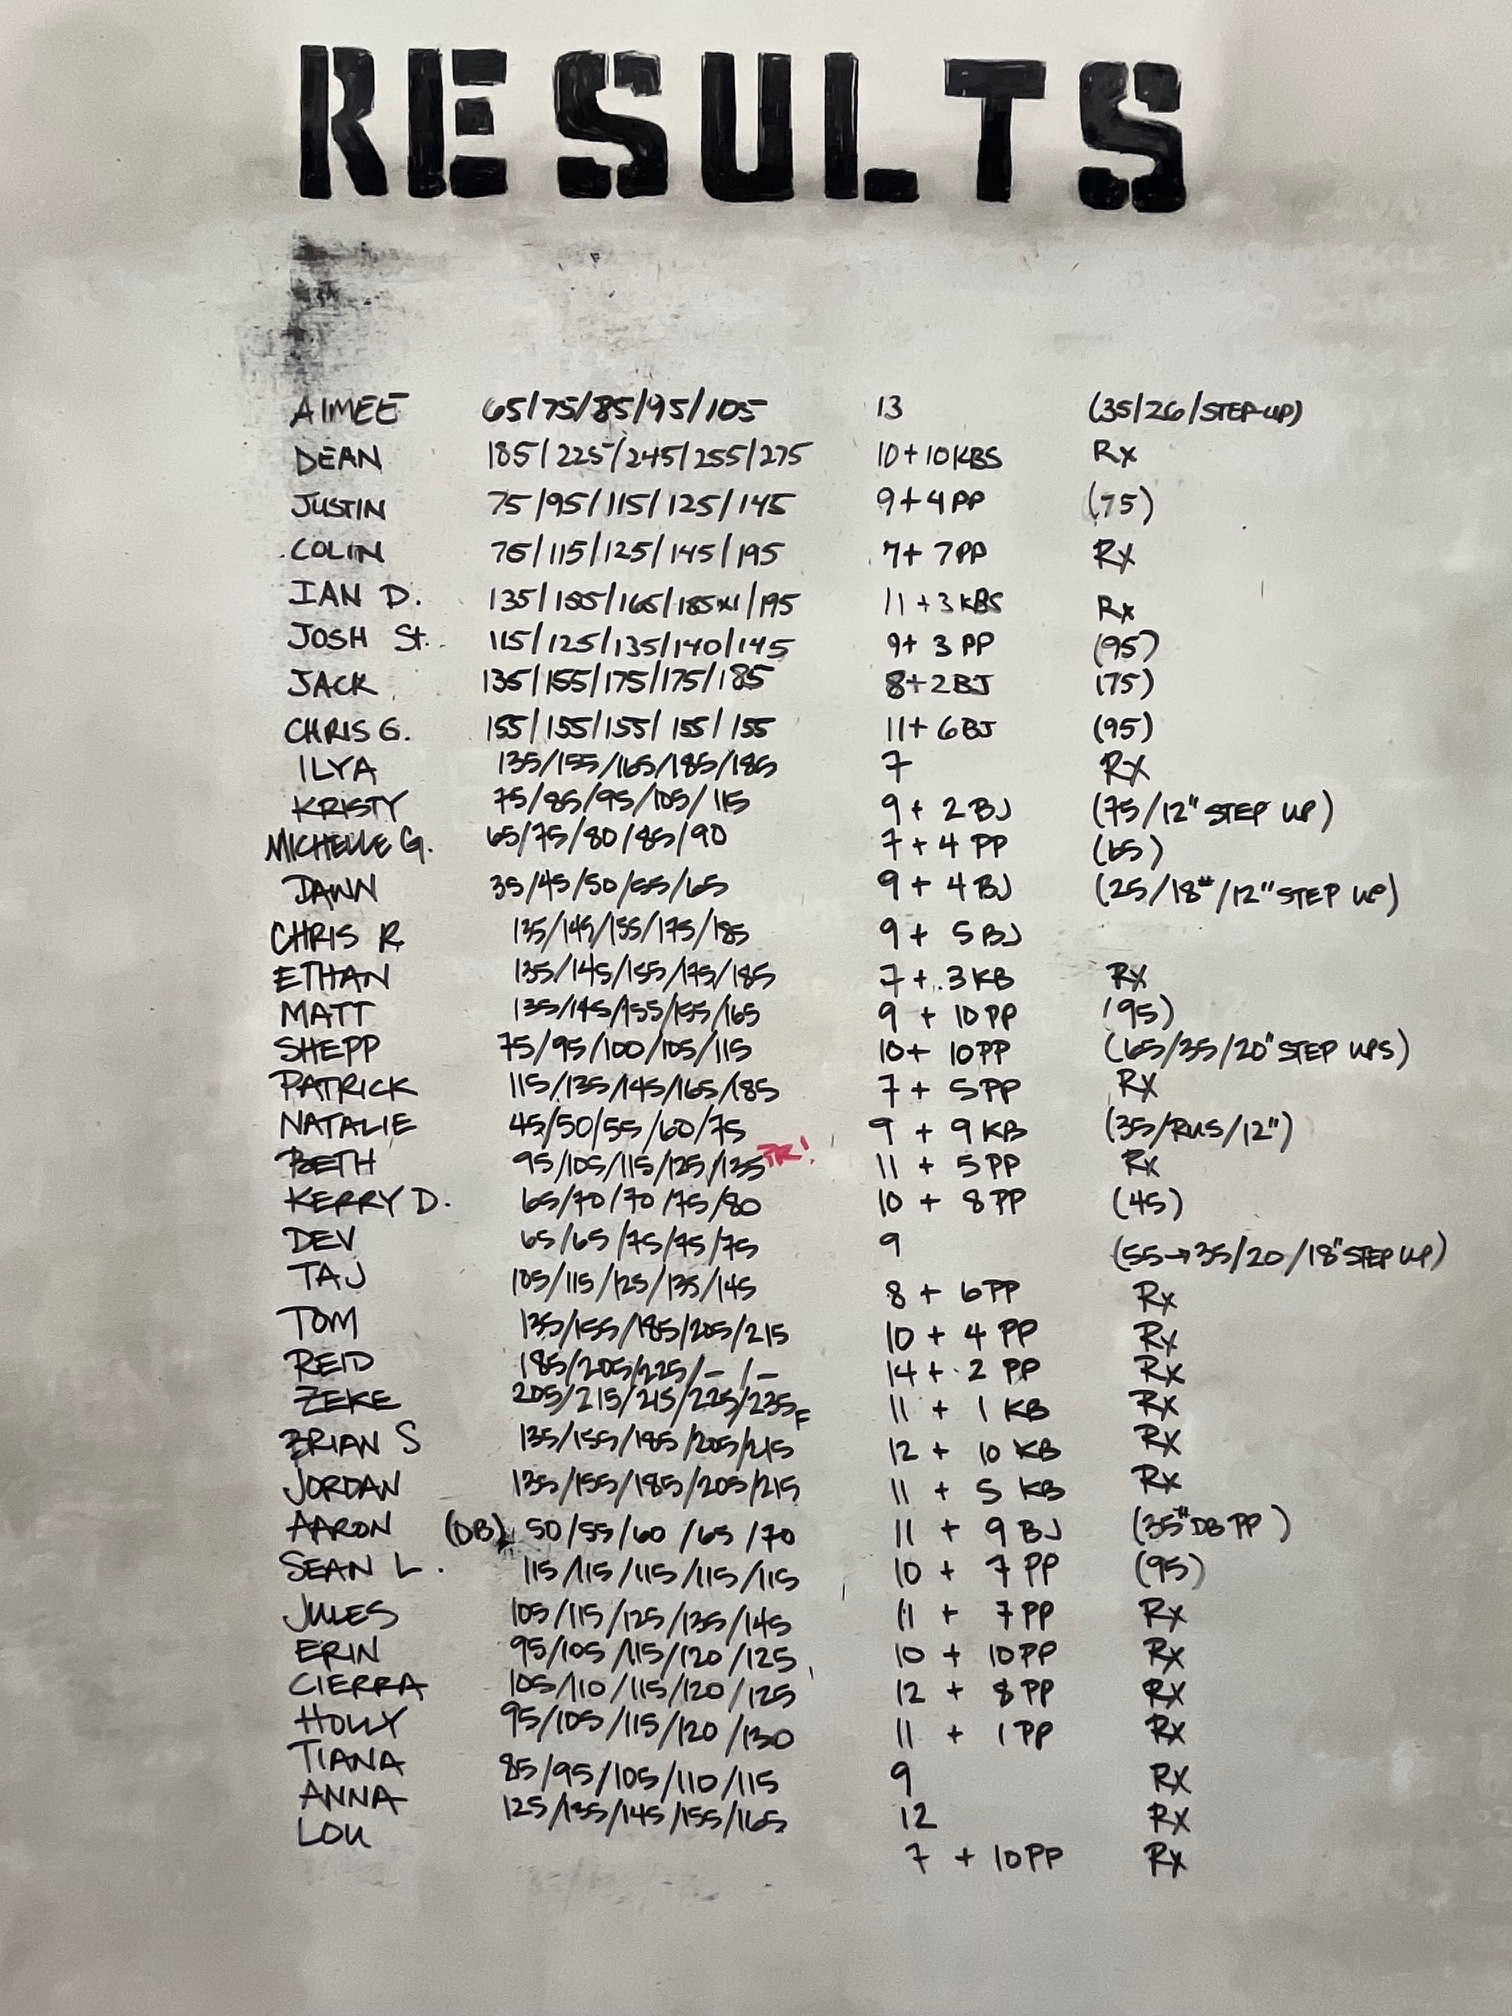 RESULTS
AIMEE 65/75/85/95/105 13 (35/26/STEP-UP)
DEAN 185/225/245/255/275 10+10KBS Rx
JUSTIN 75/95/115/125/145 9+4PP (75)
COLIN 75/115/125/145/195 7+7PP Rx
IAN D. 135/155/165/185x1/195 11+3KBS Rx
JOSH St. 115/125/135/140/145 9+3PP (95)
JACK 135/155/175/175/185 8+2BJ (75)
CHRIS G. 155/155/155/155/155 11+6BJ (95)
ILYA 135/155/165/185/185 7 RX
KRISTY 75/85/95/105/115 9+2BJ (75/12" STEP UP)
MICHELLE G. 65/75/80/85/90 7+4PP (65)
DAWN 35/45/50/55/65 9+4BJ (25/18#/12" STEP UP)
CHRIS R 135/145/155/175/185 9+5BJ
ETHAN 135/145/155/175/185 7+3KB Rx
MATT 135/145/155/155/165 9+10PP (95)
SHEPP 75/95/100/105/115 10+10PP (65/35/20" STEP UPS)
PATRICK 115/135/145/165/185 7+5PP Rx
NATALIE 45/50/55/60/75 9+9KB (35/RUS/12")
BETH 95/105/115/125/135 PR! 11+5PP Rx
KERRY D. 65/70/70/75/80 10+8PP (45)
DEV 65/65/75/75/75 9 (55→35/20/18" STEP UP)
TAJ 105/115/125/135/145 8+6PP Rx
TOM 135/155/185/205/215 10+4PP Rx
REID 185/205/225/-/- 14+2PP Rx
ZEKE 205/215/215/225/235F 11+1KB Rx
BRIAN S 135/155/185/205/215 12+10KB Rx
JORDAN 135/155/185/205/215 11+5KB Rx
AARON (DB) 50/55/60/65/70 11+9BJ (35# DB PP)
SEAN L. 115/115/115/115/115 10+7PP (95)
JULES 105/115/125/135/145 11+7PP Rx
ERIN 95/105/115/120/125 10+10PP Rx
CIERRA 105/110/115/120/125 12+8PP Rx
HOLLY 95/105/115/120/130 11+1PP Rx
TIANA 85/95/105/110/115 9 Rx
ANNA 125/135/145/155/165 12 Rx
LOU 7+10PP Rx